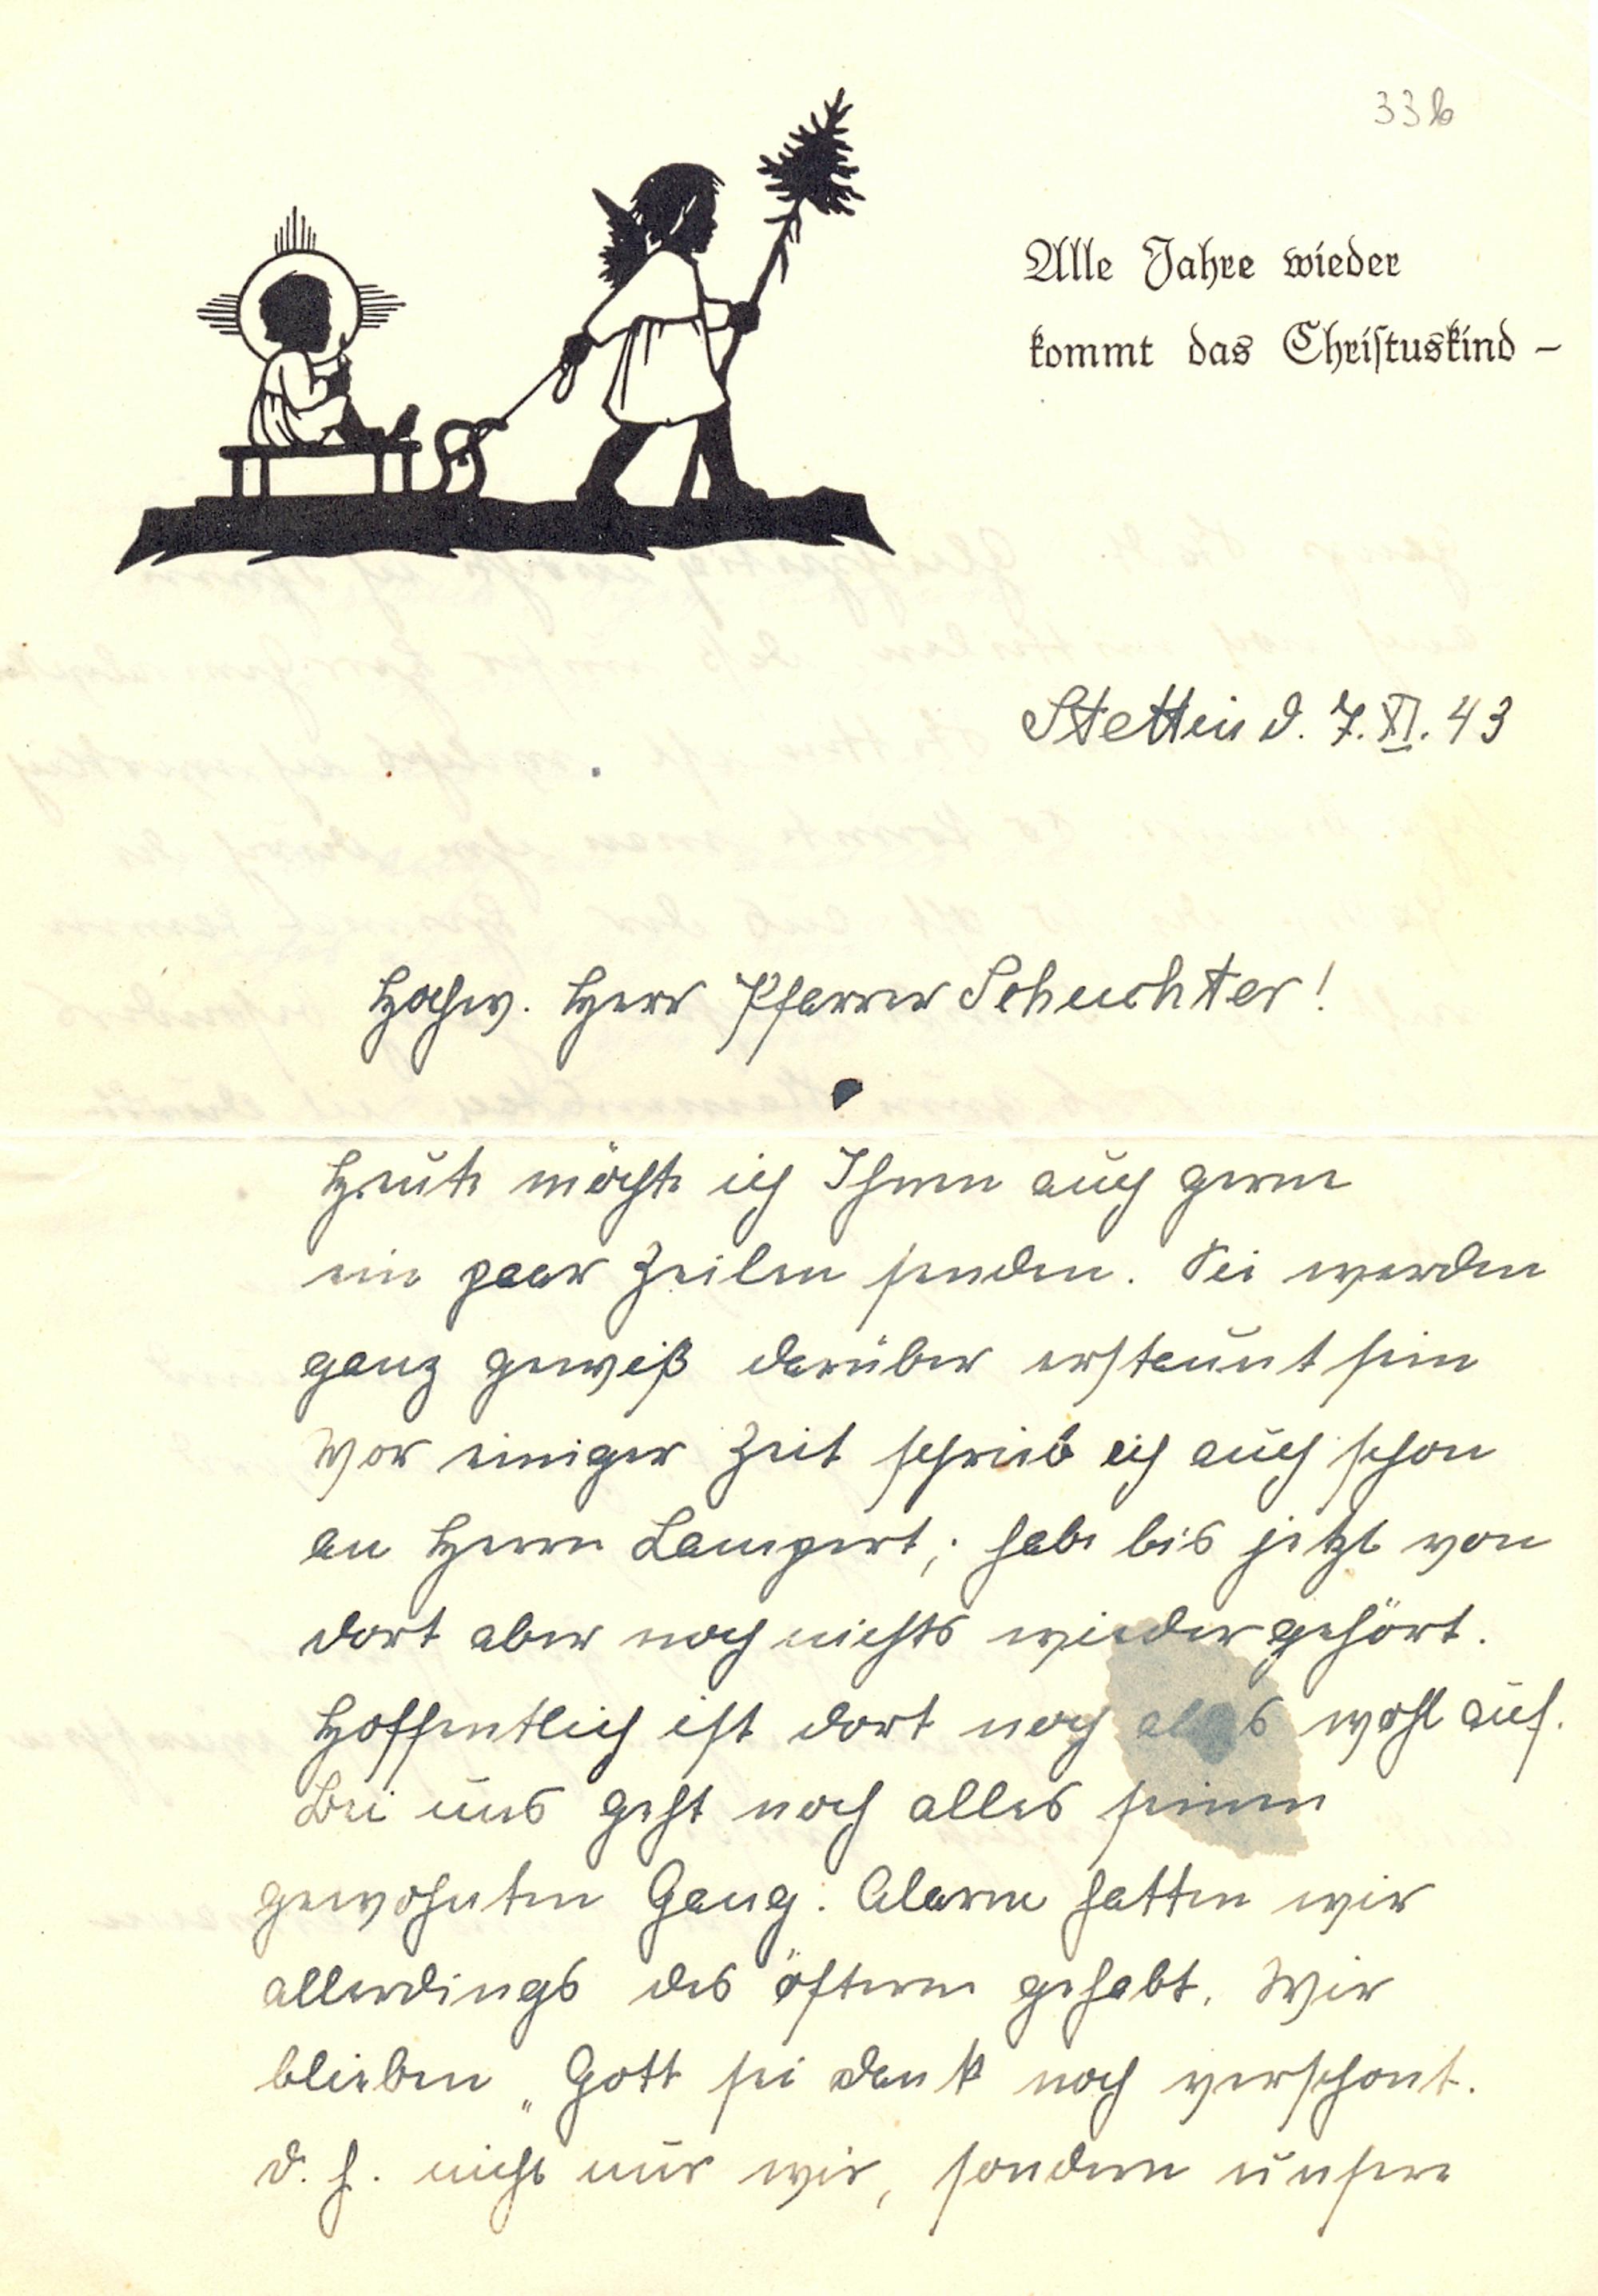 33b
Alle Jahre wieder
kommt das Christuskind –
Stettin d. 7. XI. 43
Hochw. Herr Pfarrer Schuchter!
Heute möchte ich Ihnen auch gerne
ein paar Zeilen senden. Sei werden
ganz gewiß darüber erstaunt sein
Vor einiger Zeit schrieb ich auch schon
an Herrn Lampert; habe bis jetzt von
dort aber noch nichts wieder gehört.
Hoffentlich ist dort noch alles wohl auf.
Bei uns geht noch alles seinen
gewohnten Gang. Alarm hatten wir
allerdings des öfteren gehabt. Wir
blieben „Gott sei dank noch verschont.
d. h. nicht nur wir, sondern unsere